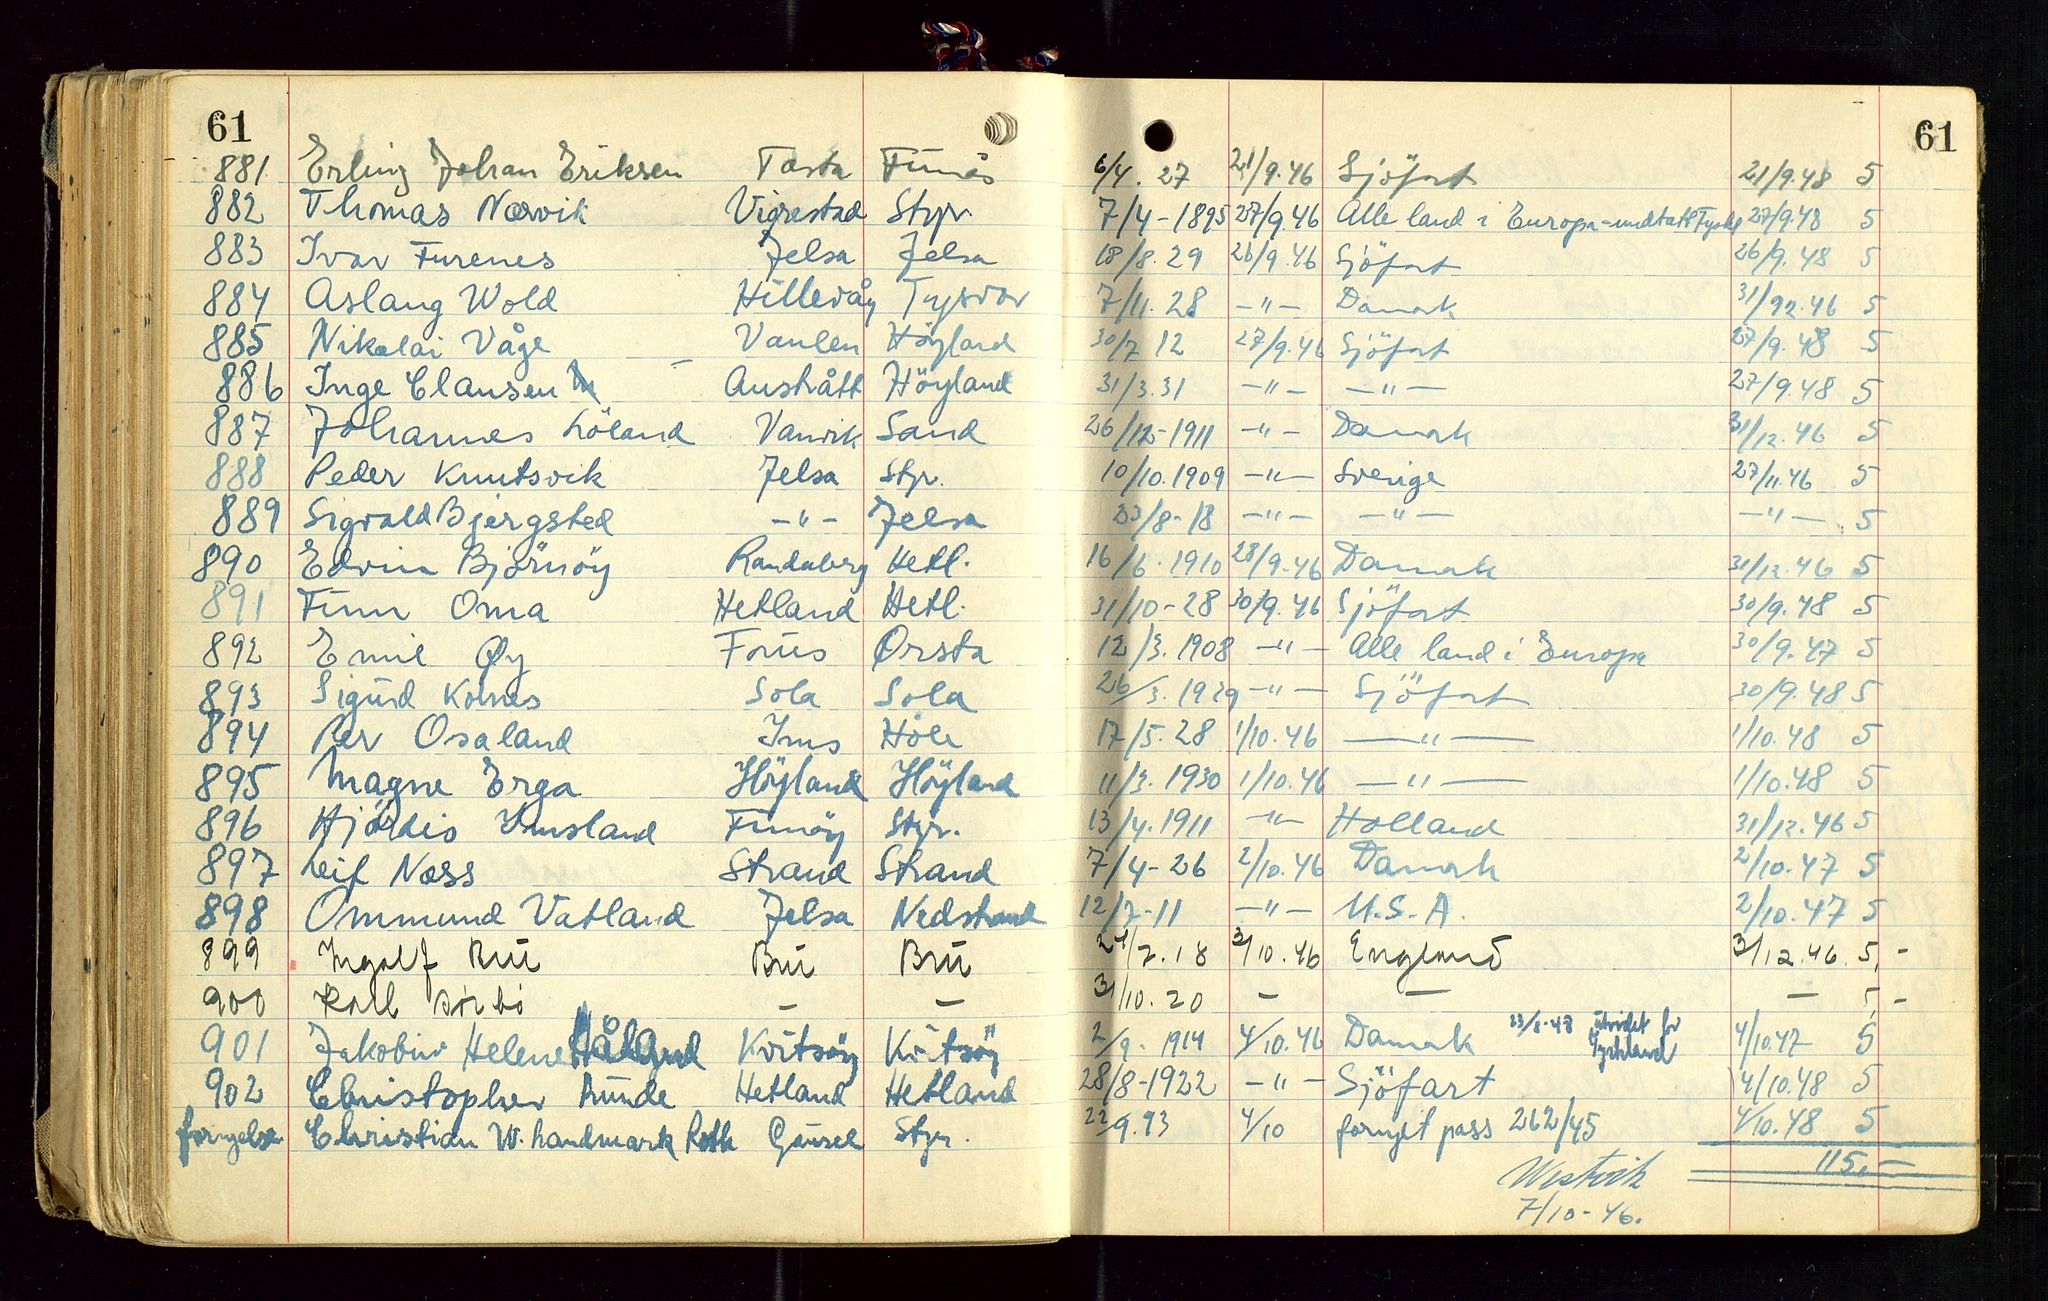 61 61
881 Erling Johan Eriksen Tasta Finnås 6/4. 27 21/9.46 Sjöfart 21/9.48 5
882 Thomas Nærvik Vigrestad Styr. 7/4-1895 27/9.46 Alle land i Europa-undtatt Tyskl 27/9.48 5
883 Ivar Furenes Jelsa Jelsa 18/8.29 26/9.46 Sjöfart 26/9.48 5
884 Aslaug Wold Hillevåg Tysvær 7/11.28 -"- Danmark 31/12.46 5
885 Nikolai Våge Vaulen Höyland 30/7 12 27/9.46 Sjöfart 27/9.48 5
886 Inge Clausen Austrått Höyland 31/3.31 -"- -"- 27/9.48 5
887 Johannes Löland Vanvik Sand 26/12-1911 -"- Danmark 31/12.46 5
888 Peder Knutsvik Jelsa Styr. 10/10.1909 -"- Sverige 27/11.46 5
889 Sigvald Bjergsted -"- Jelsa 23/8-18 -"- -"- -"- 5
890 Edvin Björnöy Randaberg Hetl. 16/6.1910 28/9.46 Danmark 31/12.46 5
891 Finn Oma Hetland Hetl. 31/10-28 30/9.46 Sjöfart 30/9.48 5
892 Emil Øy Forus Ørsta 12/3.1908 -"- Alle land i Europa 30/9.47 5
893 Sigurd Kolnes Sola Sola 26/3.1929 -"- Sjöfart 30/9.48 5
894 Per Osaland Ims Höle 17/5.28 1/10.46 -"- 1/10.48 5
895 Magne Erga Höyland Höyland 11/3.1930 1/10.46 -"- 1/10.48 5
896 Hjördis Imsland Finnöy Styr. 13/4.1911 -"- Holland 31/12.46 5
897 Leif Næss Strand Strand 7/4-26 2/10.46 Danmark 2/10.47 5
898 Ommund Vatland Jelsa Nedstrand 12/7-11 -"- U.S.A. 2/10.47 5
899 Ingolf Bru Bru Bru 21/2.18 3/10.46 England 3/12.46. 5,-
900 - - 31/10.20 - - - 5,-
901 Jakobine Helene Håland Kvitsöy Kvitsöy 2/9-1914 4/10.46 Danmark 23/8-47 utvidet for Tyskland 4/10.47 5
902 Christopher Runde Hetland Hetland 28/8-1922 -"- Sjöfart 4/10.48 5
fornyelse Christian W. Landmark Roth Gausel Styr. 22/9.93 4/10 fornyet pass 262/45 4/10.48 5
115,-
Westvik
7/10-46.